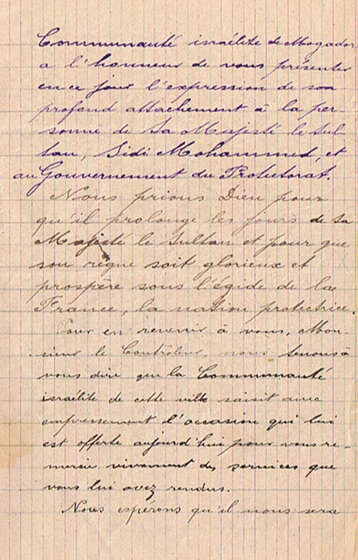 Communauté israélite de Mogador
a l'honneur de vous présenter
en ce jour l'expression de son
profond attachement à la per-
sonne de Sa Majesté le Sul-
tan, Sidi Mohammed, et
au Gouvernement du Protectorat.
Nous prions Dieu pour
qu'il prolonge les jours de sa
Majesté le Sultan et pour que
son règne soit glorieux et
prospère sous l'égide de la
France, la nation protectrice.
Pour en revenir à vous, Mon-
sieur le Contrôleur, nous tenons à
vous dire que la Communauté
israélite de cette ville saisit avec
empressement l'occasion qui lui
est offerte aujourd'hui pour vous re-
mercier vivement des services que
vous lui avez rendus.
Nous espérons qu'il nous sera